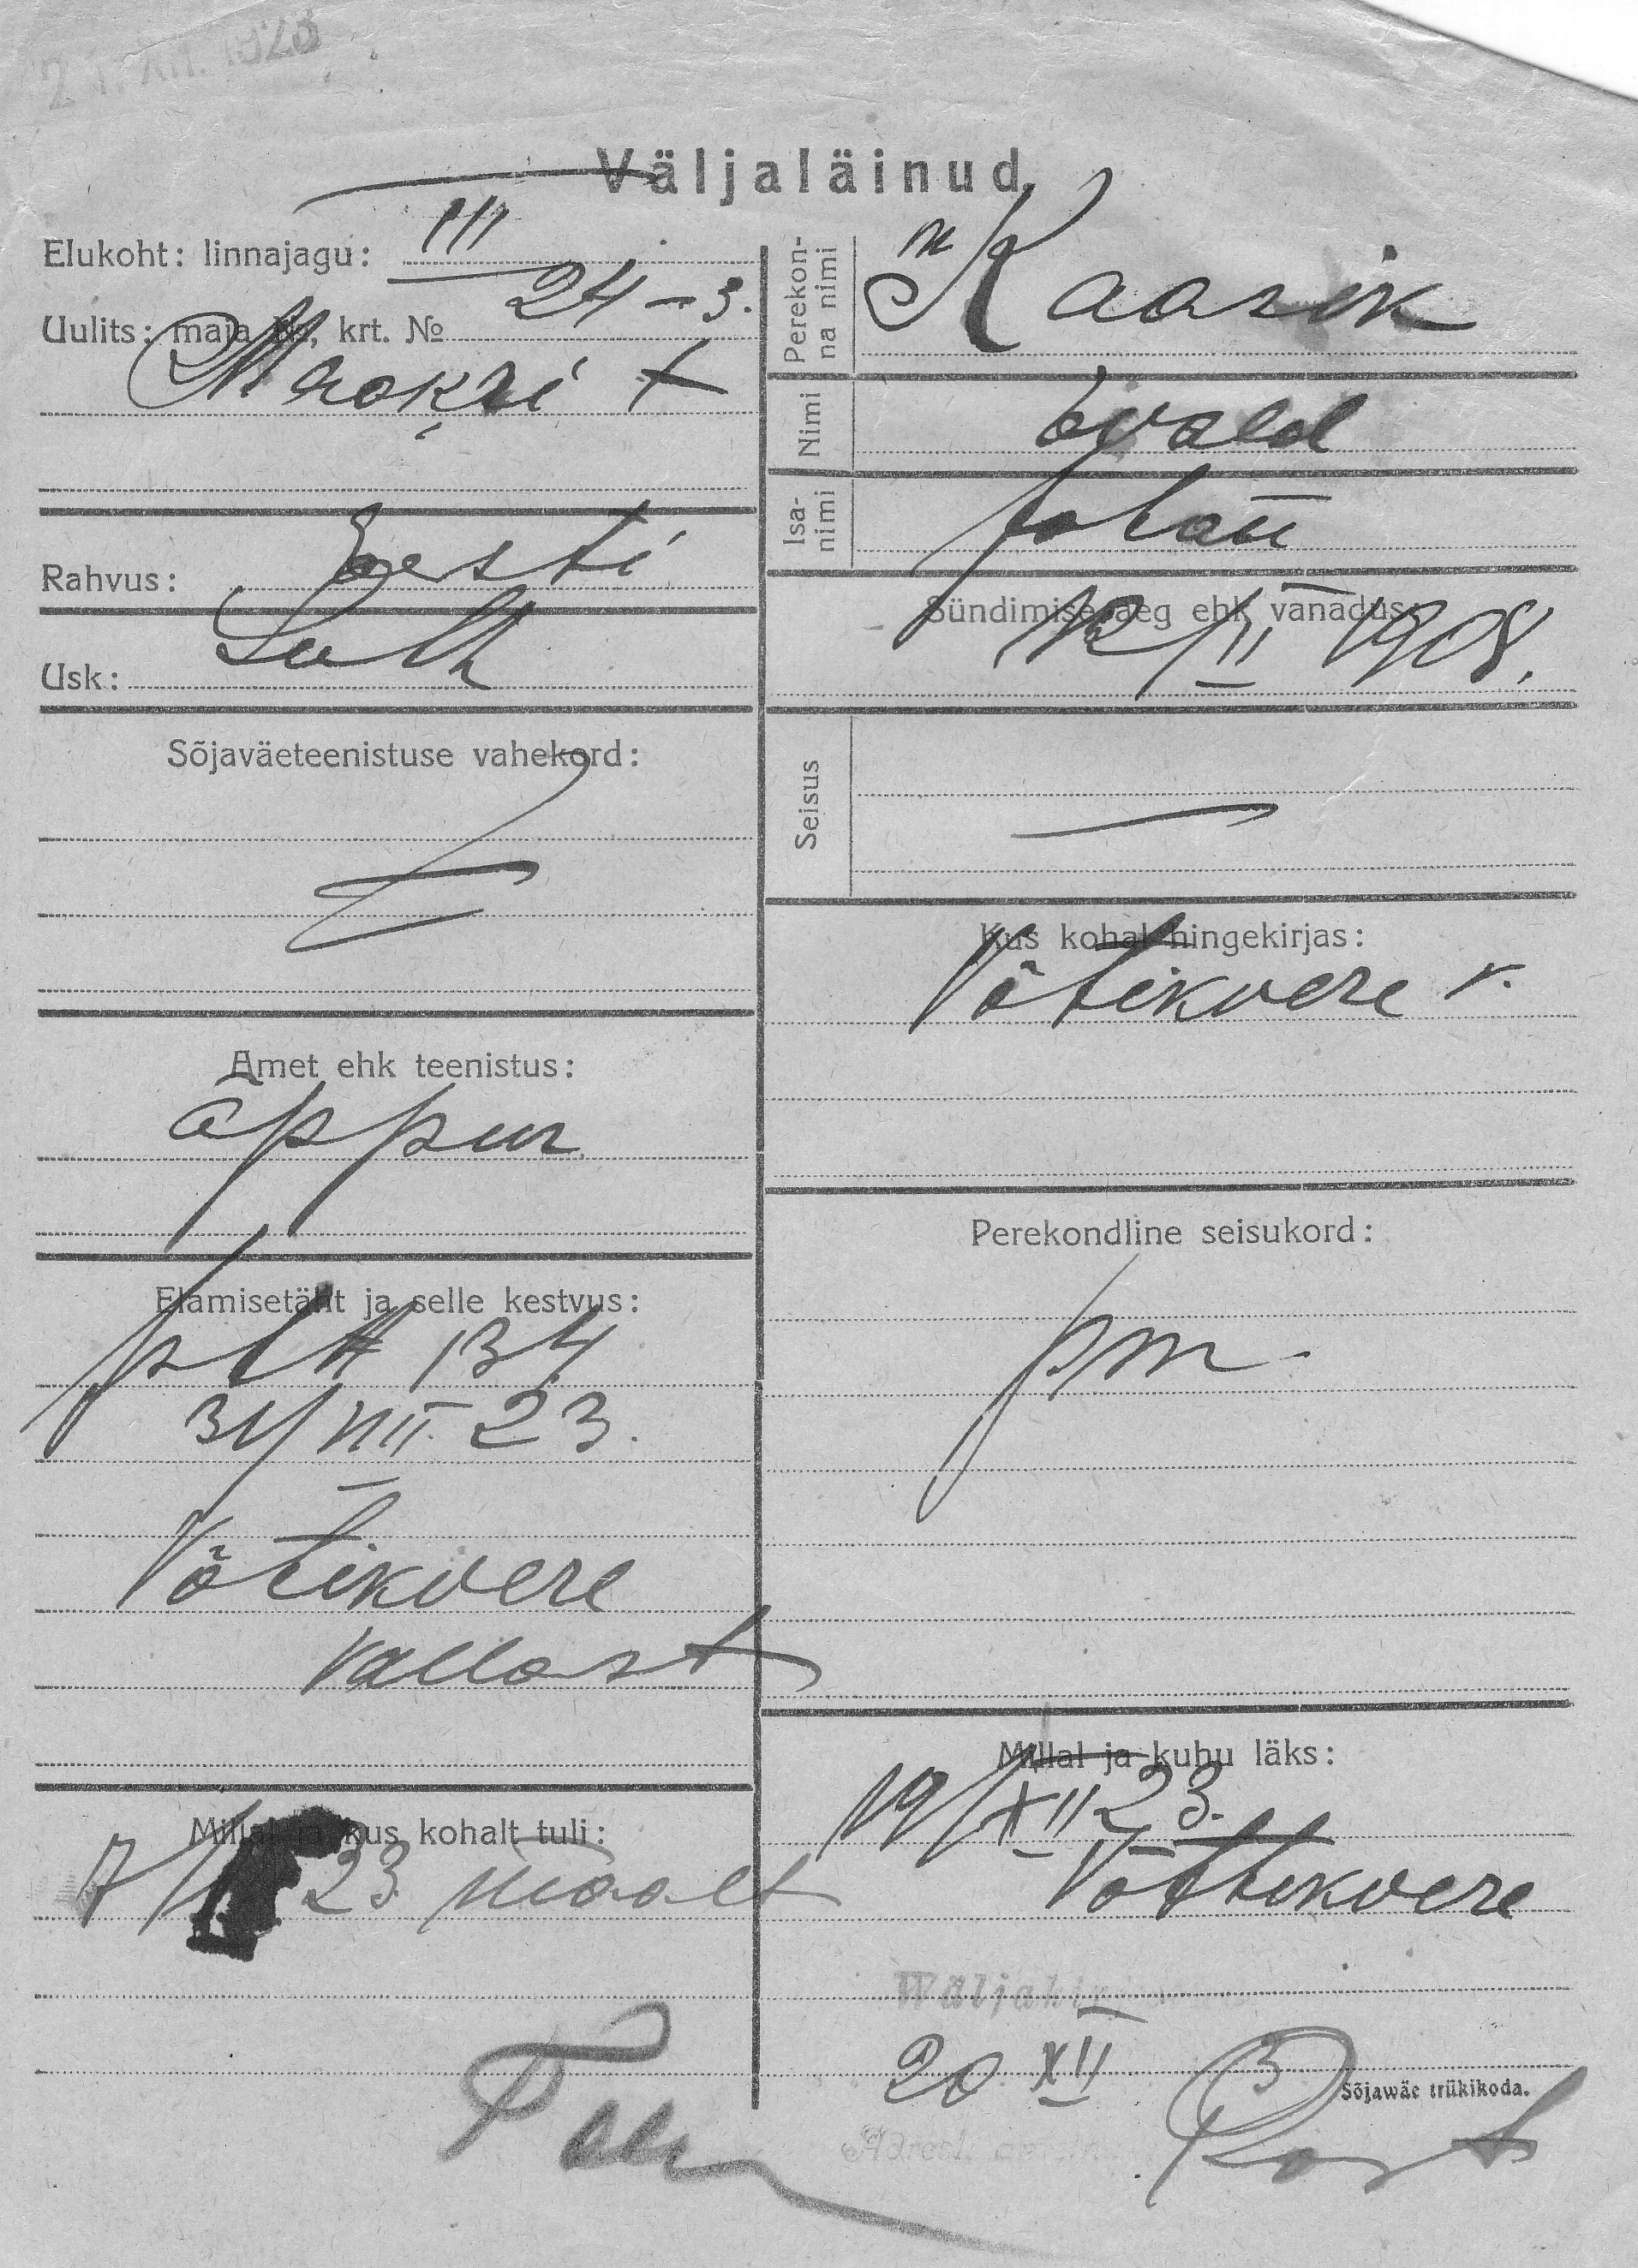 XII. 1923
Väljaläinud
Elukoht: linnajagu: III
Uulits: maja №, krt. № 24 – 3.
Maakri t
Rahvus: Eesti
Usk: Luth
Sõjaväeteenistuse vahekord:
Amet ehk teenistus:
õppur
Elamisetäht ja selle kestvus:
134
31/VII 23.
Võtikvere
vallast
Millal ja kus kohalt tuli:
23 maalt
Perekonna nimi
m Kaasik
Nimi
Evald
Isanimi
Johan
Sündimise aeg ehk vanadus:
12/II 1908.
Seisus
—
Kus kohal hingekirjas:
Võtikvere v.
Perekondline seisukord:
pm.
Millal ja kuhu läks:
19/XII 23.
Võttikvere
20 XII
3
Sõjawäe trükikoda.